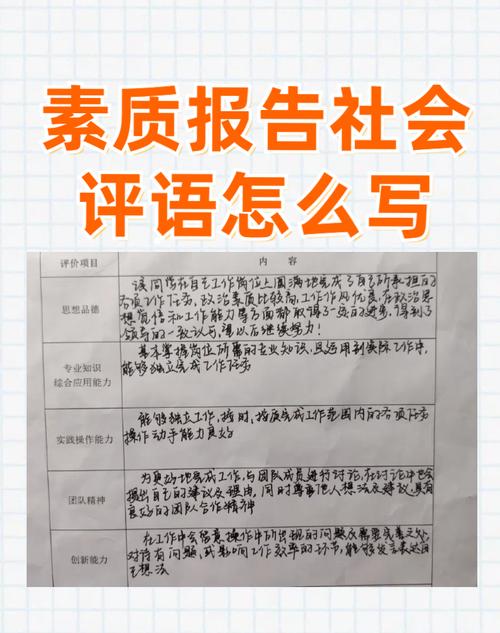 素质报告社会
评语怎么写
评价项目 内容
思想品德
该同学在自己工作岗位上圆满地完成了自己所承担的
各项工作任务,政治素质比较高,工作作风优良,在政治思
想觉悟和工作能力等方面都取得了一致的进步,得到了
领导的一致认可,望以后继续努力!
专业知识
综合应用能力
基本掌握岗位所需的专业知识,且运用到实际工作中,
能够独立完成工作任务
实践操作能力
能够独立工作,按时,按质完成工作范围内的各项任务
操作动手能力良好
团队精神
为更好地完成工作,与团队成员进行讨论,在讨论中也会
提出自己的建议及理由,同时尊重他人想法及建议,具有
良好的团队合作精神
创新能力
在工作中会留意操作中所出现的问题及需要完善之处,
对待有问题,或影响工作效率的环节,能够发言表达自
己想法